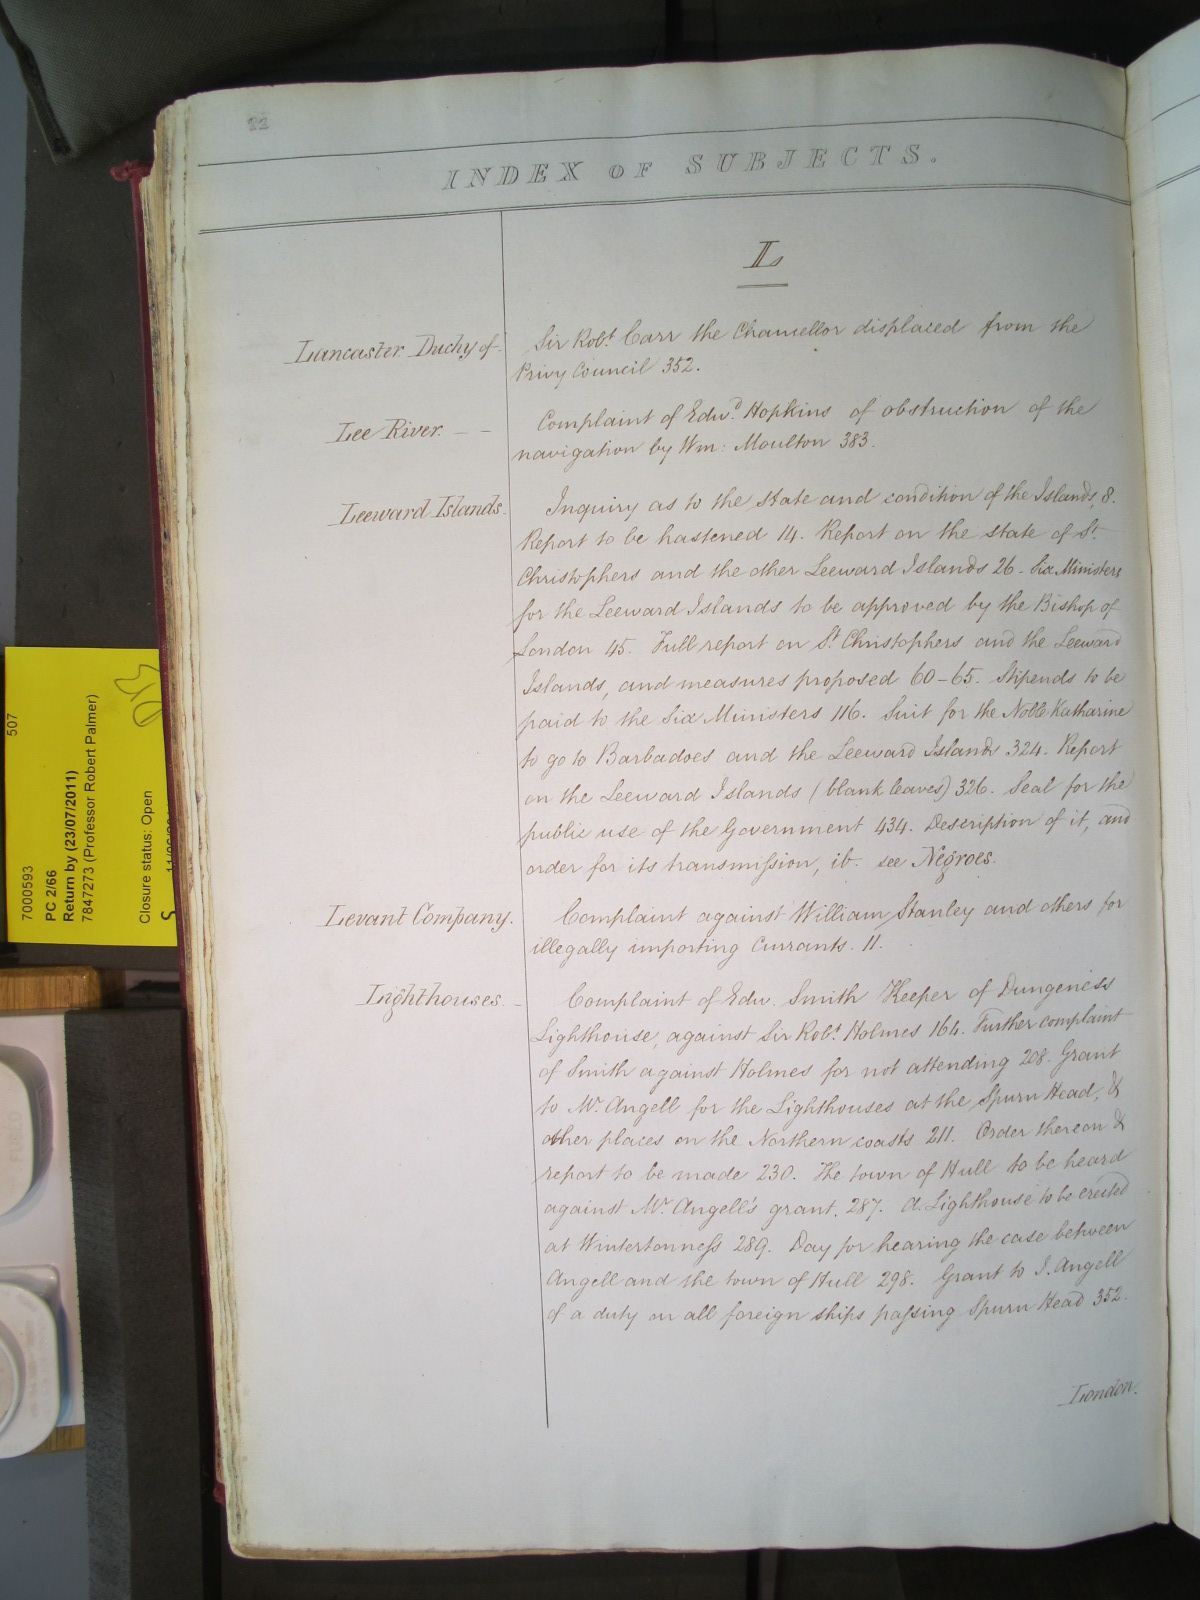 22
INDEX OF SUBJECTS.
L
Lancaster Duchy of
Sir Robt. Carr the Chancellor displaced from the
Privy Council 352.
Lee River. – –
Complaint of Edwd. Hopkins of obstruction of the
navigation by Wm: Moulton 383.
Leeward Islands.
Inquiry as to the state and condition of the Islands, 8.
Report to be hastened 14. Report on the state of St.
Christophers and the other Leeward Islands 26. Six Ministers
for the Leeward Islands to be approved by the Bishop of
London 45. Full report on St. Christophers and the Leeward
Islands, and measures proposed 60–65. Stipends to be
paid to the Six Ministers 116. Suit for the Noble Katharine
to go to Barbadoes and the Leeward Islands 324. Report
on the Leeward Islands (blank leaves) 326. Seal for the
public use of the Government 434. Description of it, and
order for its transmission, ib. see Negroes.
Levant Company.
Complaint against William Stanley and others for
illegally importing Currants. 11.
Lighthouses. –
Complaint of Edw. Smith Keeper of Dungeness
Lighthouse, against Sir Robt. Holmes 164. Further complaint
of Smith against Holmes for not attending 208. Grant
to Mr. Angell for the Lighthouses at the Spurn Head, &
other places on the Northern coasts 211. Order thereon &
report to be made 230. The town of Hull to be heard
against Mr. Angell's grant. 287. A Lighthouse to be erected
at Wintertonness 289. Day for hearing the case between
Angell and the town of Hull 298. Grant to J. Angell
of a duty on all foreign ships passing Spurn Head 352.
London.
507
7000593
PC 2/66
Return by (23/07/2011)
7847273 (Professor Robert Palmer)
Closure status: Open